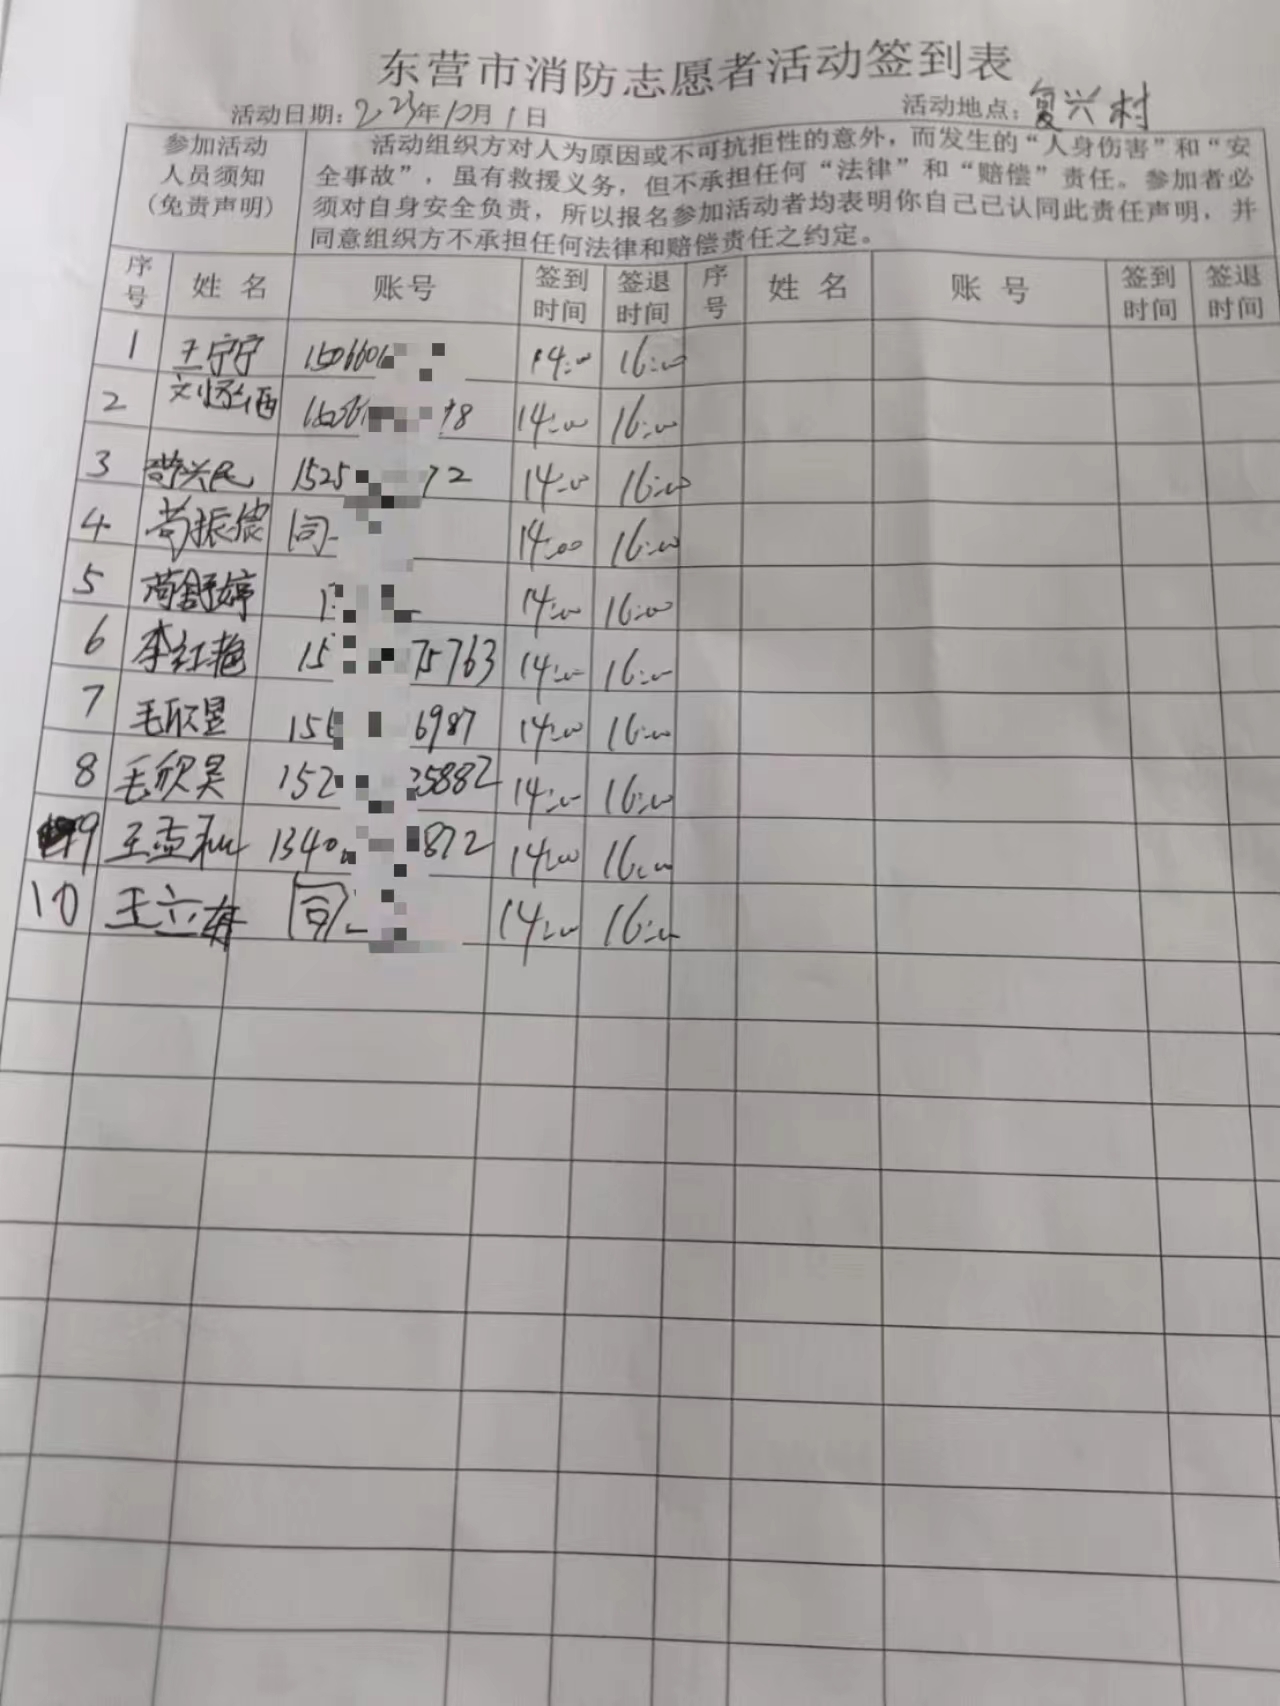 东营市消防志愿者活动签到表
活动日期：223年10月1日 活动地点：复兴村
参加活动
人员须知
（免责声明）
活动组织方对人为原因或不可抗拒性的意外，而发生的“人身伤害”和“安
全事故”，虽有救援义务，但不承担任何“法律”和“赔偿”责任。参加者必
须对自身安全负责，所以报名参加活动者均表明你自己已认同此责任声明，并
同意组织方不承担任何法律和赔偿责任之约定。
序号 姓名 账号 签到时间 签退时间 序号 姓名 账号 签到时间 签退时间
1 王宁宁 1506601 14:00 16:00
2 78 14:00 16:00
3 苟兴民 1525 72 14:00 16:00
4 苟振 同 14:00 16:00
5 苟舒婷 1 14:00 16:00
6 李红艳 15 75763 14:00 16:00
7 毛欣昱 156 6987 14:00 16:00
8 毛欣昊 152 25882 14:00 16:00
9 王孟 1340 872 14:00 16:00
10 王立 同 14:00 16:00